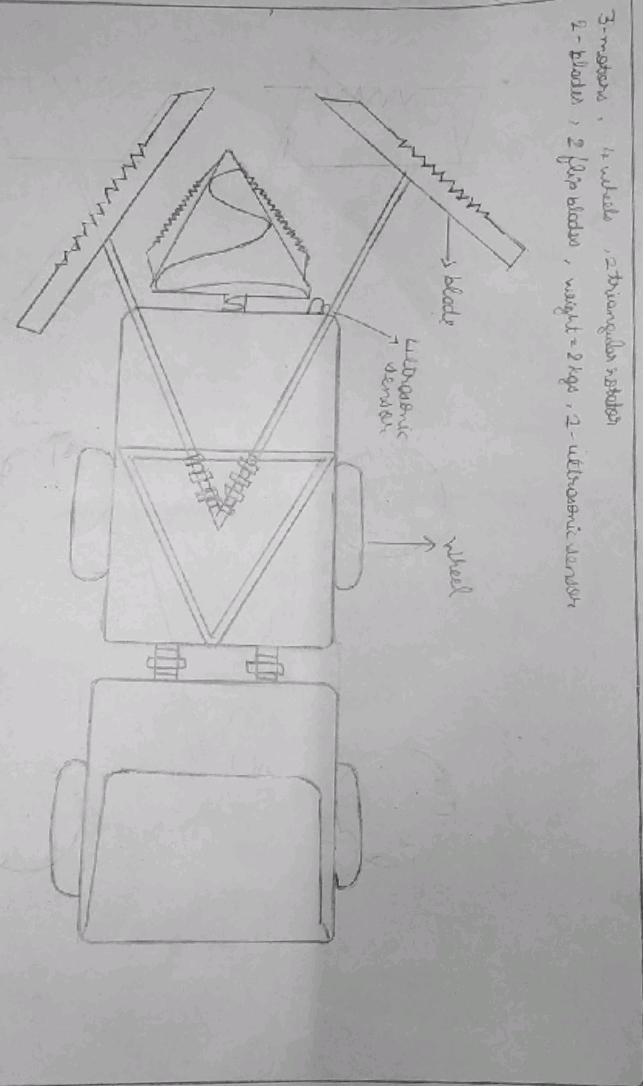 3-motors, 4 wheels, 2 triangular rotator
2-blades, 2 flip blades, weight = 2 kgs, 2-ultrasonic sensor
blade
wheel
ultrasonic
sensor